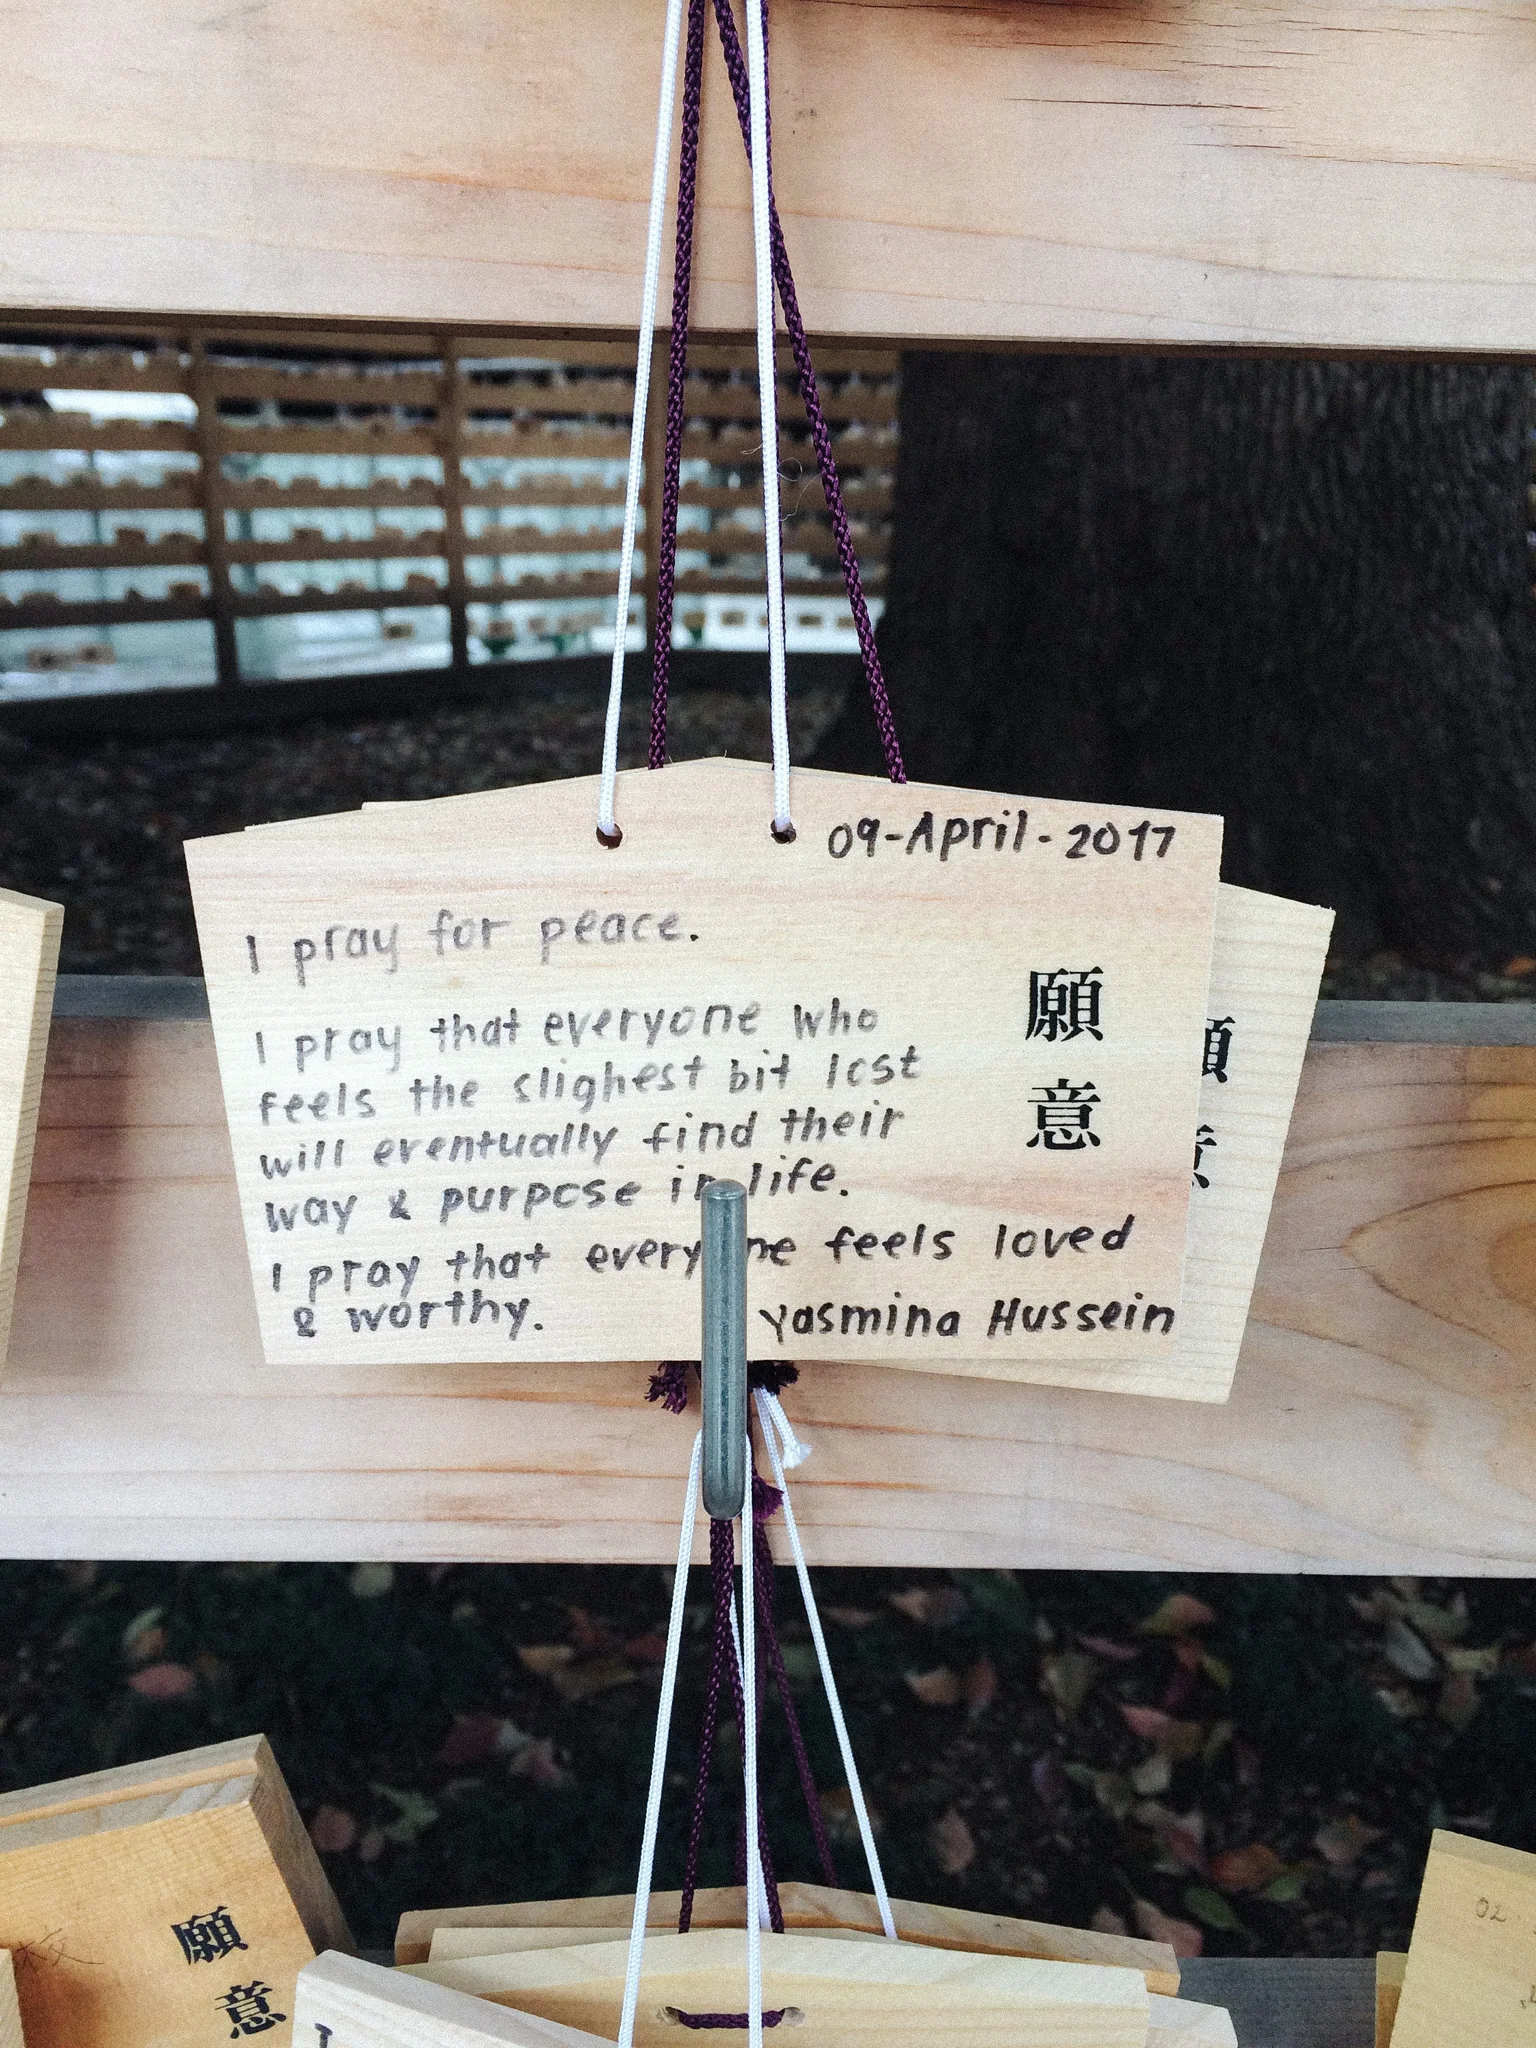 09-April-2017
I pray for peace.
I pray that everyone who
feels the slighest bit lost
will eventually find their
way & purpose in life.
I pray that everyone feels loved
& worthy.
Yasmina Hussein
願意
願意
願意
02
I